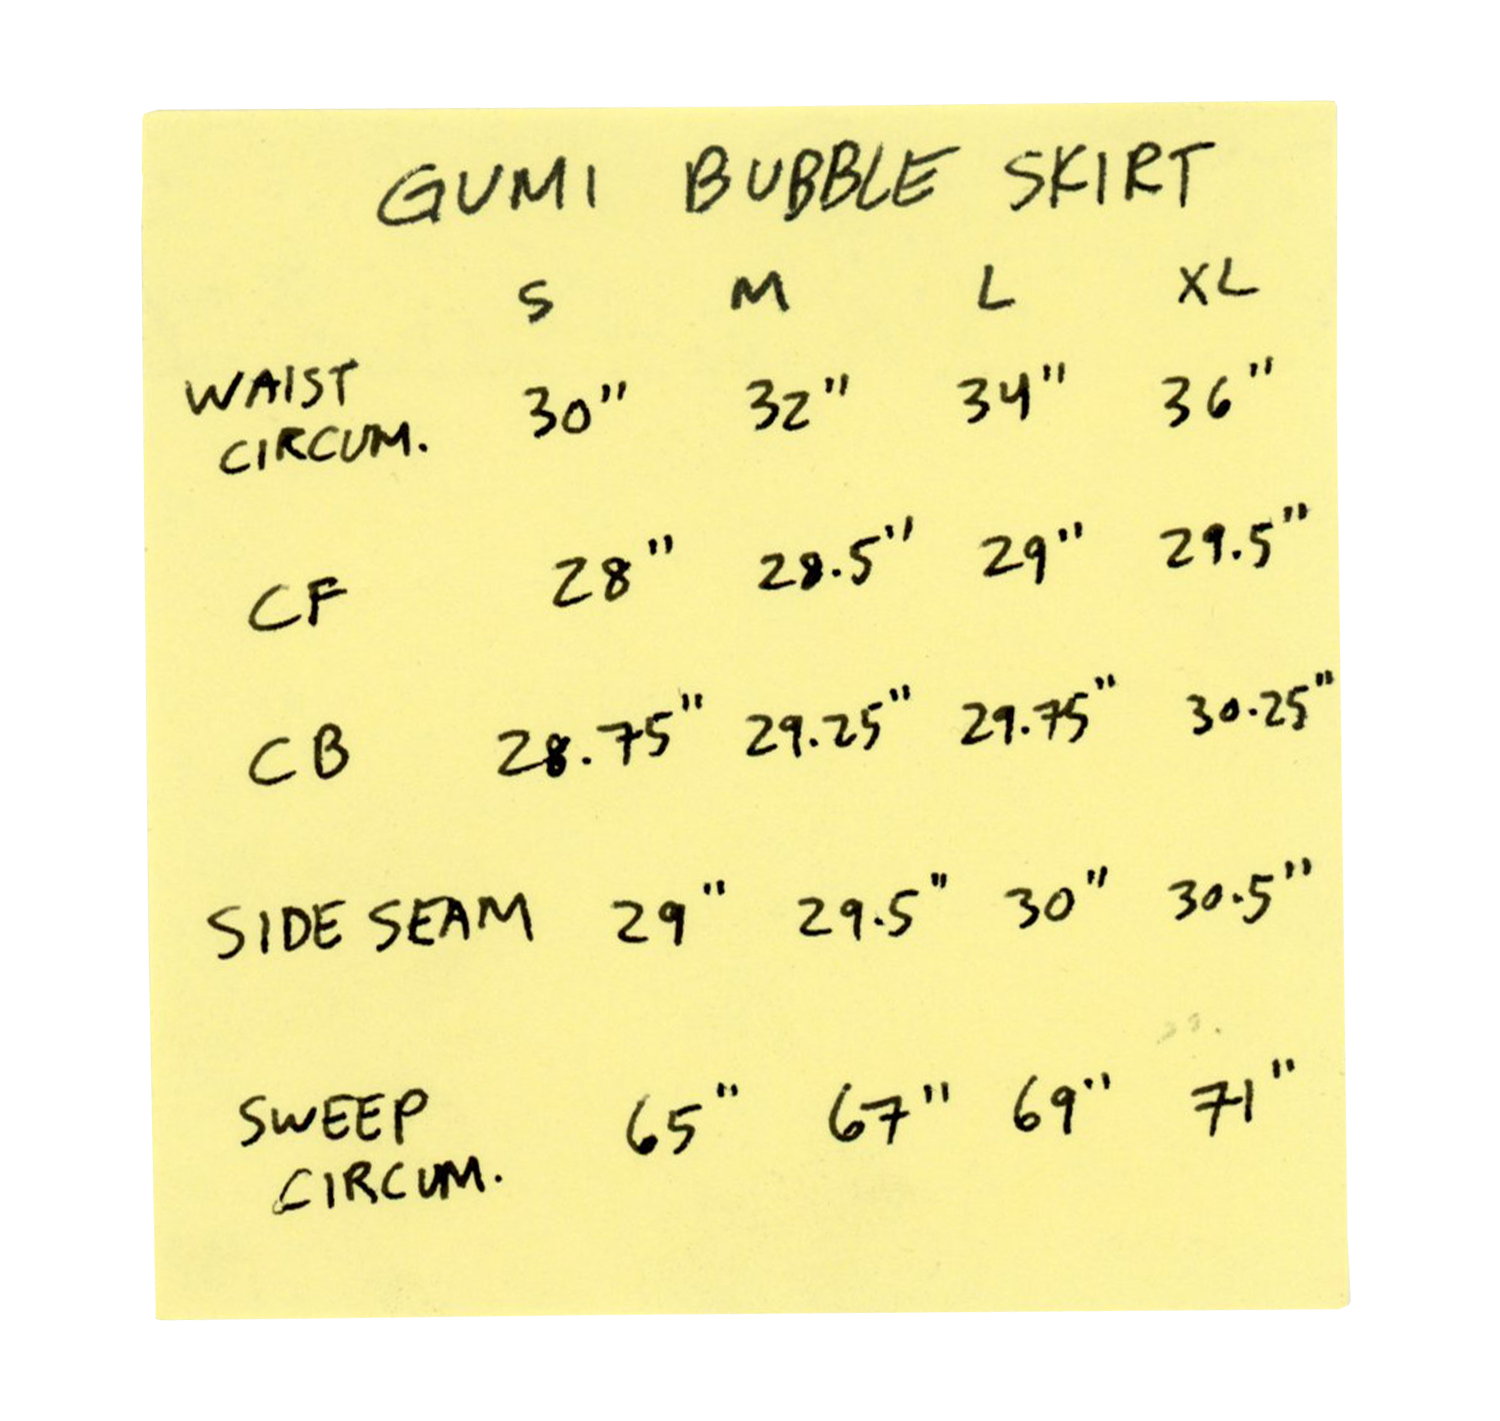 GUMI BUBBLE SKIRT
S M L XL
WAIST CIRCUM. 30" 32" 34" 36"
CF 28" 28.5" 29" 29.5"
CB 28.75" 29.25" 29.75" 30.25"
SIDE SEAM 29" 29.5" 30" 30.5"
SWEEP CIRCUM. 65" 67" 69" 71"